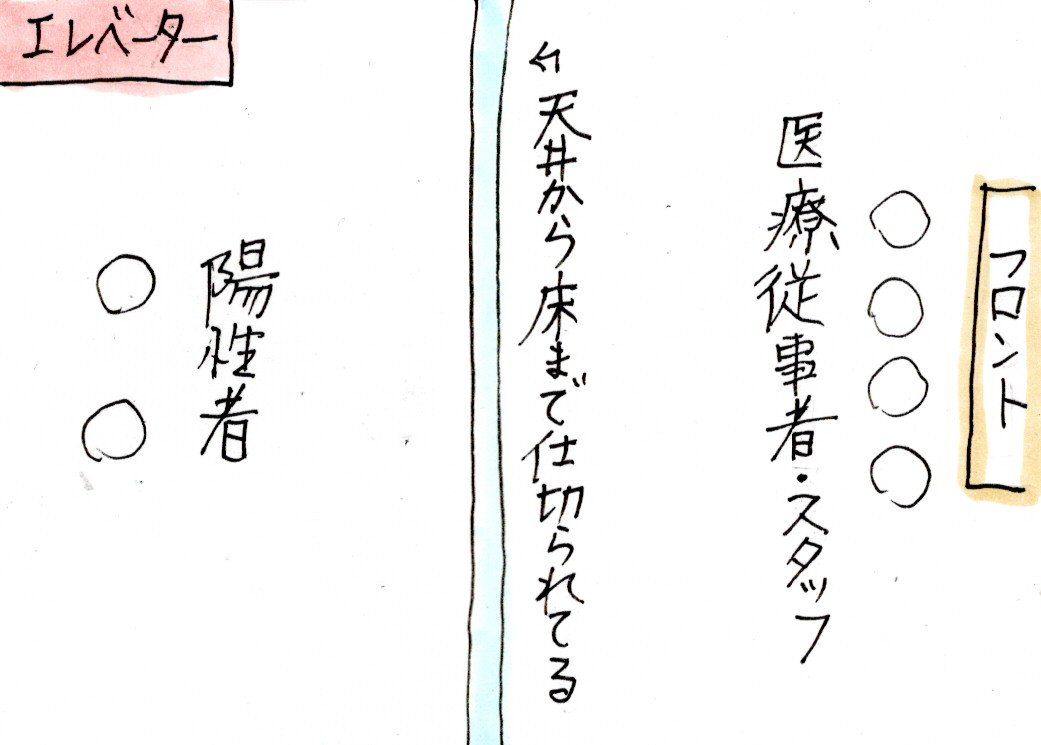 エレベーター
フロント
医療従事者・スタッフ
←天井から床まで仕切られてる
陽性者